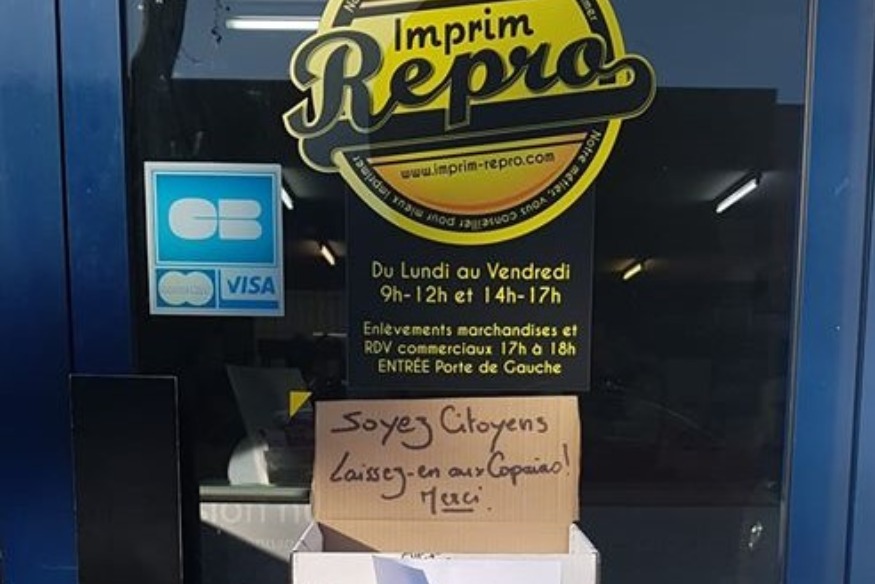 Imprim
Repro
www.imprim-repro.com
Notre métier, vous conseiller pour mieux imprimer
CB
VISA
Du Lundi au Vendredi
9h-12h et 14h-17h
Enlèvements marchandises et
RDV commerciaux 17h à 18h
ENTRÉE Porte de Gauche
Soyez Citoyens
Laissez-en aux Copains!
Merci.